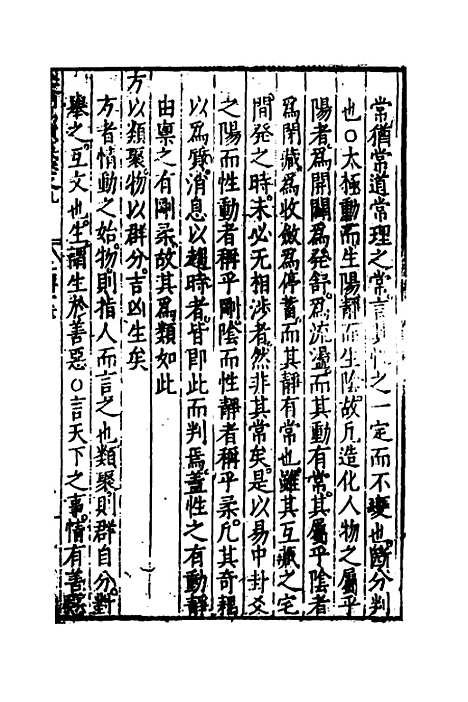 常猶常道常理之常言其性之一定而不變也斷分判
也○太極動而生陽靜而生陰故凡造化人物之屬乎
陽者爲開闢爲發舒爲流盪而其動有常其屬乎陰者
爲閉藏爲收斂爲停蓄而其靜有常也雖其互藏之宅
間發之時未必无相涉者然非其常矣是以易中卦爻
之陽而性動者稱乎剛陰而性靜者稱乎柔凡其奇耦
以爲質消息以趨時者皆即此而判焉蓋性之有動靜
由稟之有剛柔故其爲類如此
方以類聚物以群分吉凶生矣
方者情動之始物則指人而言之也類聚則群自分對
舉之互文也生謂生於善惡○言天下之事情有善惡